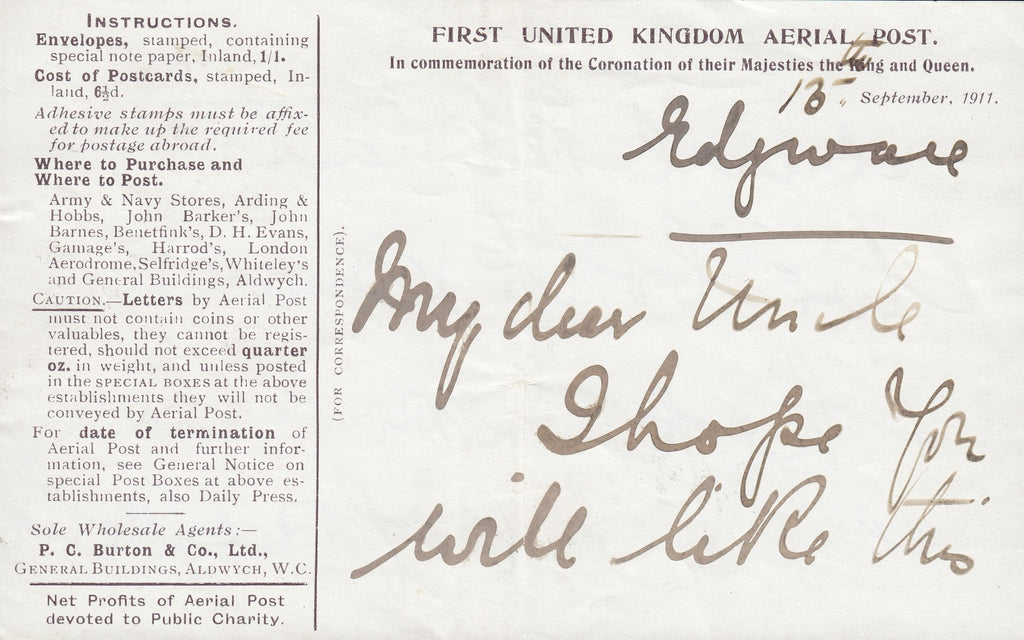 INSTRUCTIONS.
Envelopes, stamped, containing
special note paper, Inland, 1/1.
Cost of Postcards, stamped, In-
land, 6½d.
Adhesive stamps must be affix-
ed to make up the required fee
for postage abroad.
Where to Purchase and
Where to Post.
Army & Navy Stores, Arding &
Hobbs, John Barker's, John
Barnes, Benetfink's, D. H. Evans,
Gamage's, Harrod's, London
Aerodrome, Selfridge's, Whiteley's
and General Buildings, Aldwych.
CAUTION.—Letters by Aerial Post
must not contain coins or other
valuables, they cannot be regis-
tered, should not exceed quarter
oz. in weight, and unless posted
in the SPECIAL BOXES at the above
establishments they will not be
conveyed by Aerial Post.
For date of termination of
Aerial Post and further infor-
mation, see General Notice on
special Post Boxes at above es-
tablishments, also Daily Press.
Sole Wholesale Agents:—
P. C. Burton & Co., Ltd.,
GENERAL BUILDINGS, ALDWYCH, W.C.
Net Profits of Aerial Post
devoted to Public Charity.
(FOR CORRESPONDENCE).
FIRST UNITED KINGDOM AERIAL POST.
In commemoration of the Coronation of their Majesties the King and Queen.
13th September, 1911.
Edgware
My dear Uncle
I hope you
will like this